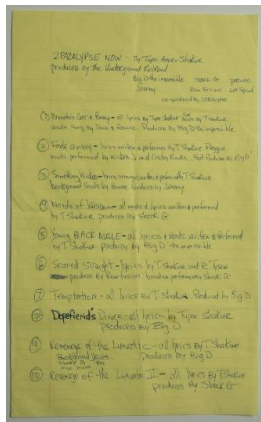 2PACALYPSE NOW : By Tupac Amaru Shakur
produced by the Underground Railroad
Big D the impossible Shock G Pee Wee
Jeremy Raw Fusion Live Squad
① Brenda's Got a Baby - all lyrics by Tupac Shakur by T Shakur
vocals sung by Dave & Roniece. Produced by Big D the impossible
② lyrics written & performed by T. Shakur Reggae
vocals performed by and Produced by Big D
③ Something Wicked - lyrics & performed by T Shakur
background vocals by produced by Jeremy
④ Words of Wisdom - all vocals & lyrics written & performed
by T. Shakur produced by Shock G
⑤ Young BLACK MALE - all lyrics & vocals written & performed
by T Shakur produced by Big D the impossible
⑥ Scared Straight - lyrics by T Shakur and R. Tyson
produced by Raw Fusion performed by Shock G
⑦ Temptation - all lyrics by T. Shakur Produced by Big D
⑧ Dopefiend's Diner - all lyrics by Tupac Shakur
Produced by Big D
⑨ Revenge of the Lunatic - all lyrics by T Shakur
Produced by Big D
⑩ Revenge of the Lunatic II - all lyrics by T. Shakur
produced by Shock G